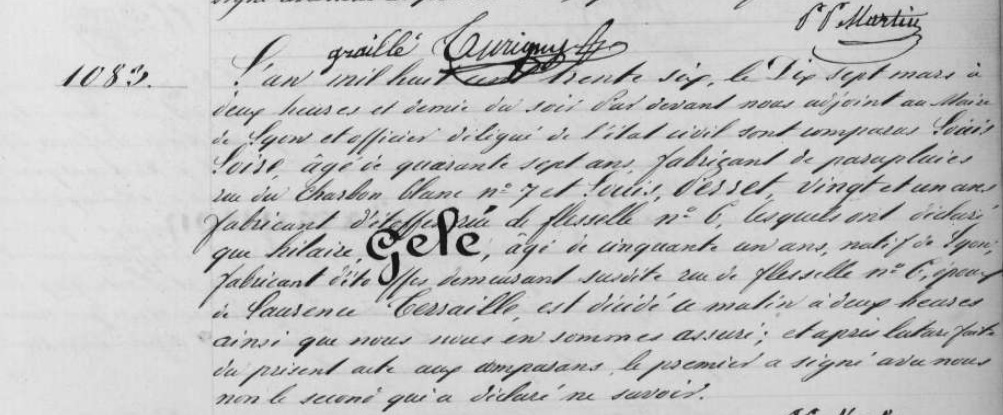 P P Martin
graillé
1083.
L'an mil huit cent trente six, le Dix sept mars à
deux heures et demie du soir Par devant nous adjoint au Maire
de Lyon et officier délégué de l'état civil sont comparus Louis
âgé de quarante sept ans, fabriquant de parapluies
rue du Charbon blanc nº 7 et Louis, Perret, vingt et un ans
fabricant d'étoffes rue de flesselle nº 6, lesquels ont déclaré
que hilaire, Gelé, âgé de cinquante un ans, natif de Lyon,
fabricant d'étoffes demeurant susdite rue de flesselle nº 6, époux
de Laurence Terraille, est décédé ce matin à deux heures
ainsi que nous nous en sommes assuré; et après lecture faite
du présent acte aux comparans, le premier a signé avec nous
non le second qui a déclaré ne savoir.